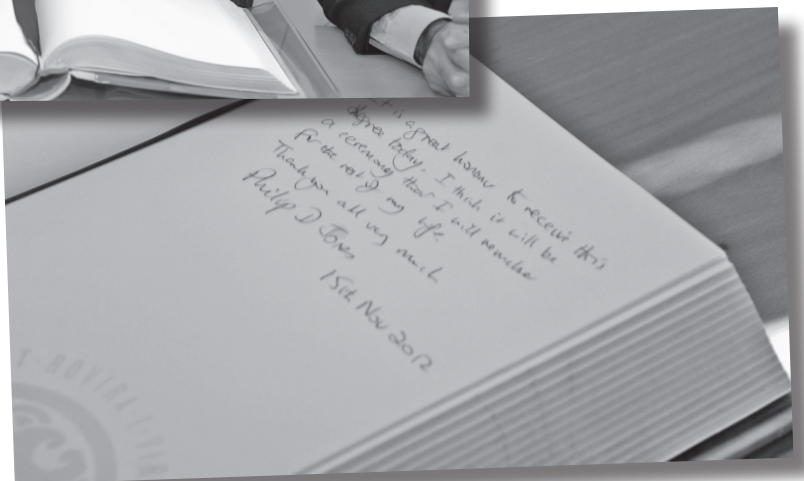 It is a great honour to receive this
degree today. I think it will be
a ceremony that I will remember
for the rest of my life.
Thank you all very much
Philip D Jones
15th Nov 2012
T · ROVIRA · I · VIR